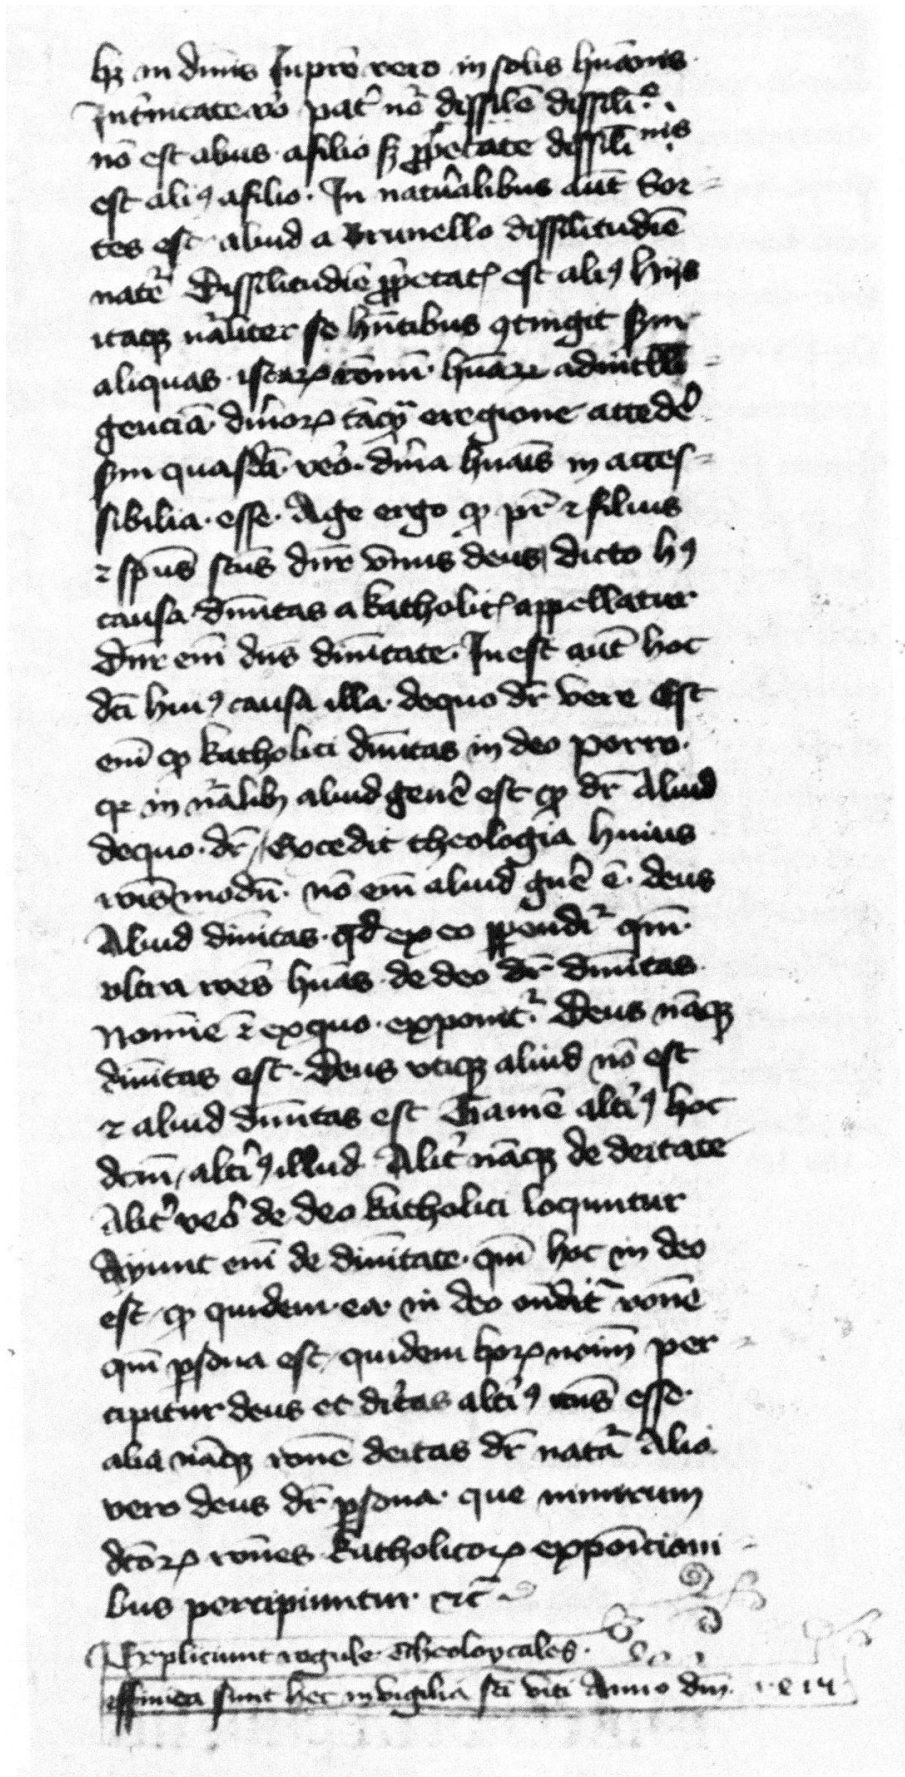 hꝫ in diuīs Inprō vero in solis huāois
In t̄nitate v̊o pat̄ nō dissil̄e dissil̄i
nō est alius a filio sꝫ ꝓp̄etate dissil̄i nis
est aliꝰ a filio. In natu̅alibus aut̄ Sor-
tes est aliud a Brunello dissil̄itudiē
natē Dissil̄itudiē ꝓp̄etatꝭ est aliꝰ hijs
itaqꝫ n̄aliter se hn̄tibus ꝯtingit
aliquas istaꝝ rōnū hūaꝝ ad intelli-
genciā diuīoꝝ tāqꝫ e regione accedē
quasdā vēo diuīa hūais in acces-
sibilia esse. Age ergo pr̄ ⁊ filius
⁊ sp̄us scūs dn̄r vnus deus dicto hꝰ
causa diuīitas a katholicꝭ appellatur
Dn̄r em̄ dus diuīitate. Inest aut̄ hoc
dc̄i huiꝰ causa illa de quo dr̄ vere Est
em̄ ꝙ katholici diuīitas in deo porro
qꝛ in n̄alibꝫ aliud gen̄e est ꝙ dr̄ Aliud
de quo dr̄ Excedit theologia huius
rōis modū. nō em̄ aliud gn̄e ē. deus
Aliud diuīitas. qd ex eo ꝑpendit̄ qm̄
vltra rōes huas de deo dr̄ diuīitas
Nomīe ⁊ ex quo exponit̄. Deus nāqꝫ
diuīitas est. Deus vtiqꝫ aliud nō est
⁊ aliud diuīitas est Tamē alt̄iꝰ hoc
dcm̄, alt̄iꝰ illud Alit̄ nāqꝫ de deitate
Alit̄ vēo de deo katholici loquntur
Ayunt em̄ de diuīitate. qm̄ hoc in deo
est, ꝙ quidem ea in deo ondit̄ rōnē
qm̄ ꝑsona est, quidem hoꝝ noīm per
cipitur deus et ditas alt̄iꝰ esse.
alia nāqꝫ rōnē deitas dr̄ nata̅ Alio
vero deus dr̄ ꝑsona. que nimirum
dcōꝝ rōnes katholicoꝝ expōicioni-
bus percipiuntur ⁊c̄
Expliciunt regule theoloycales.
⁊ finita sunt hec in vigilia sci viti Anno dni.